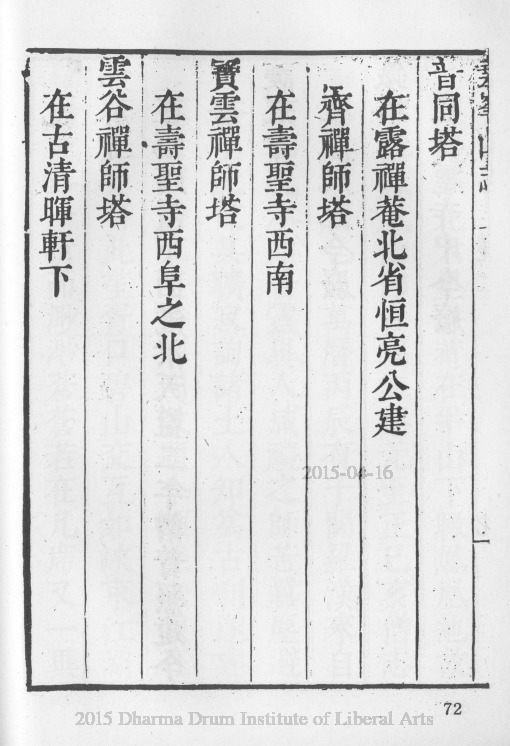 普同塔
在露禪菴北省恒亮公建
齊禪師塔
在壽聖寺西南
寶雲禪師塔
在壽聖寺西阜之北
雲谷禪師塔
在古清暉軒下
2015-04-16
72
2015 Dharma Drum Institute of Liberal Arts